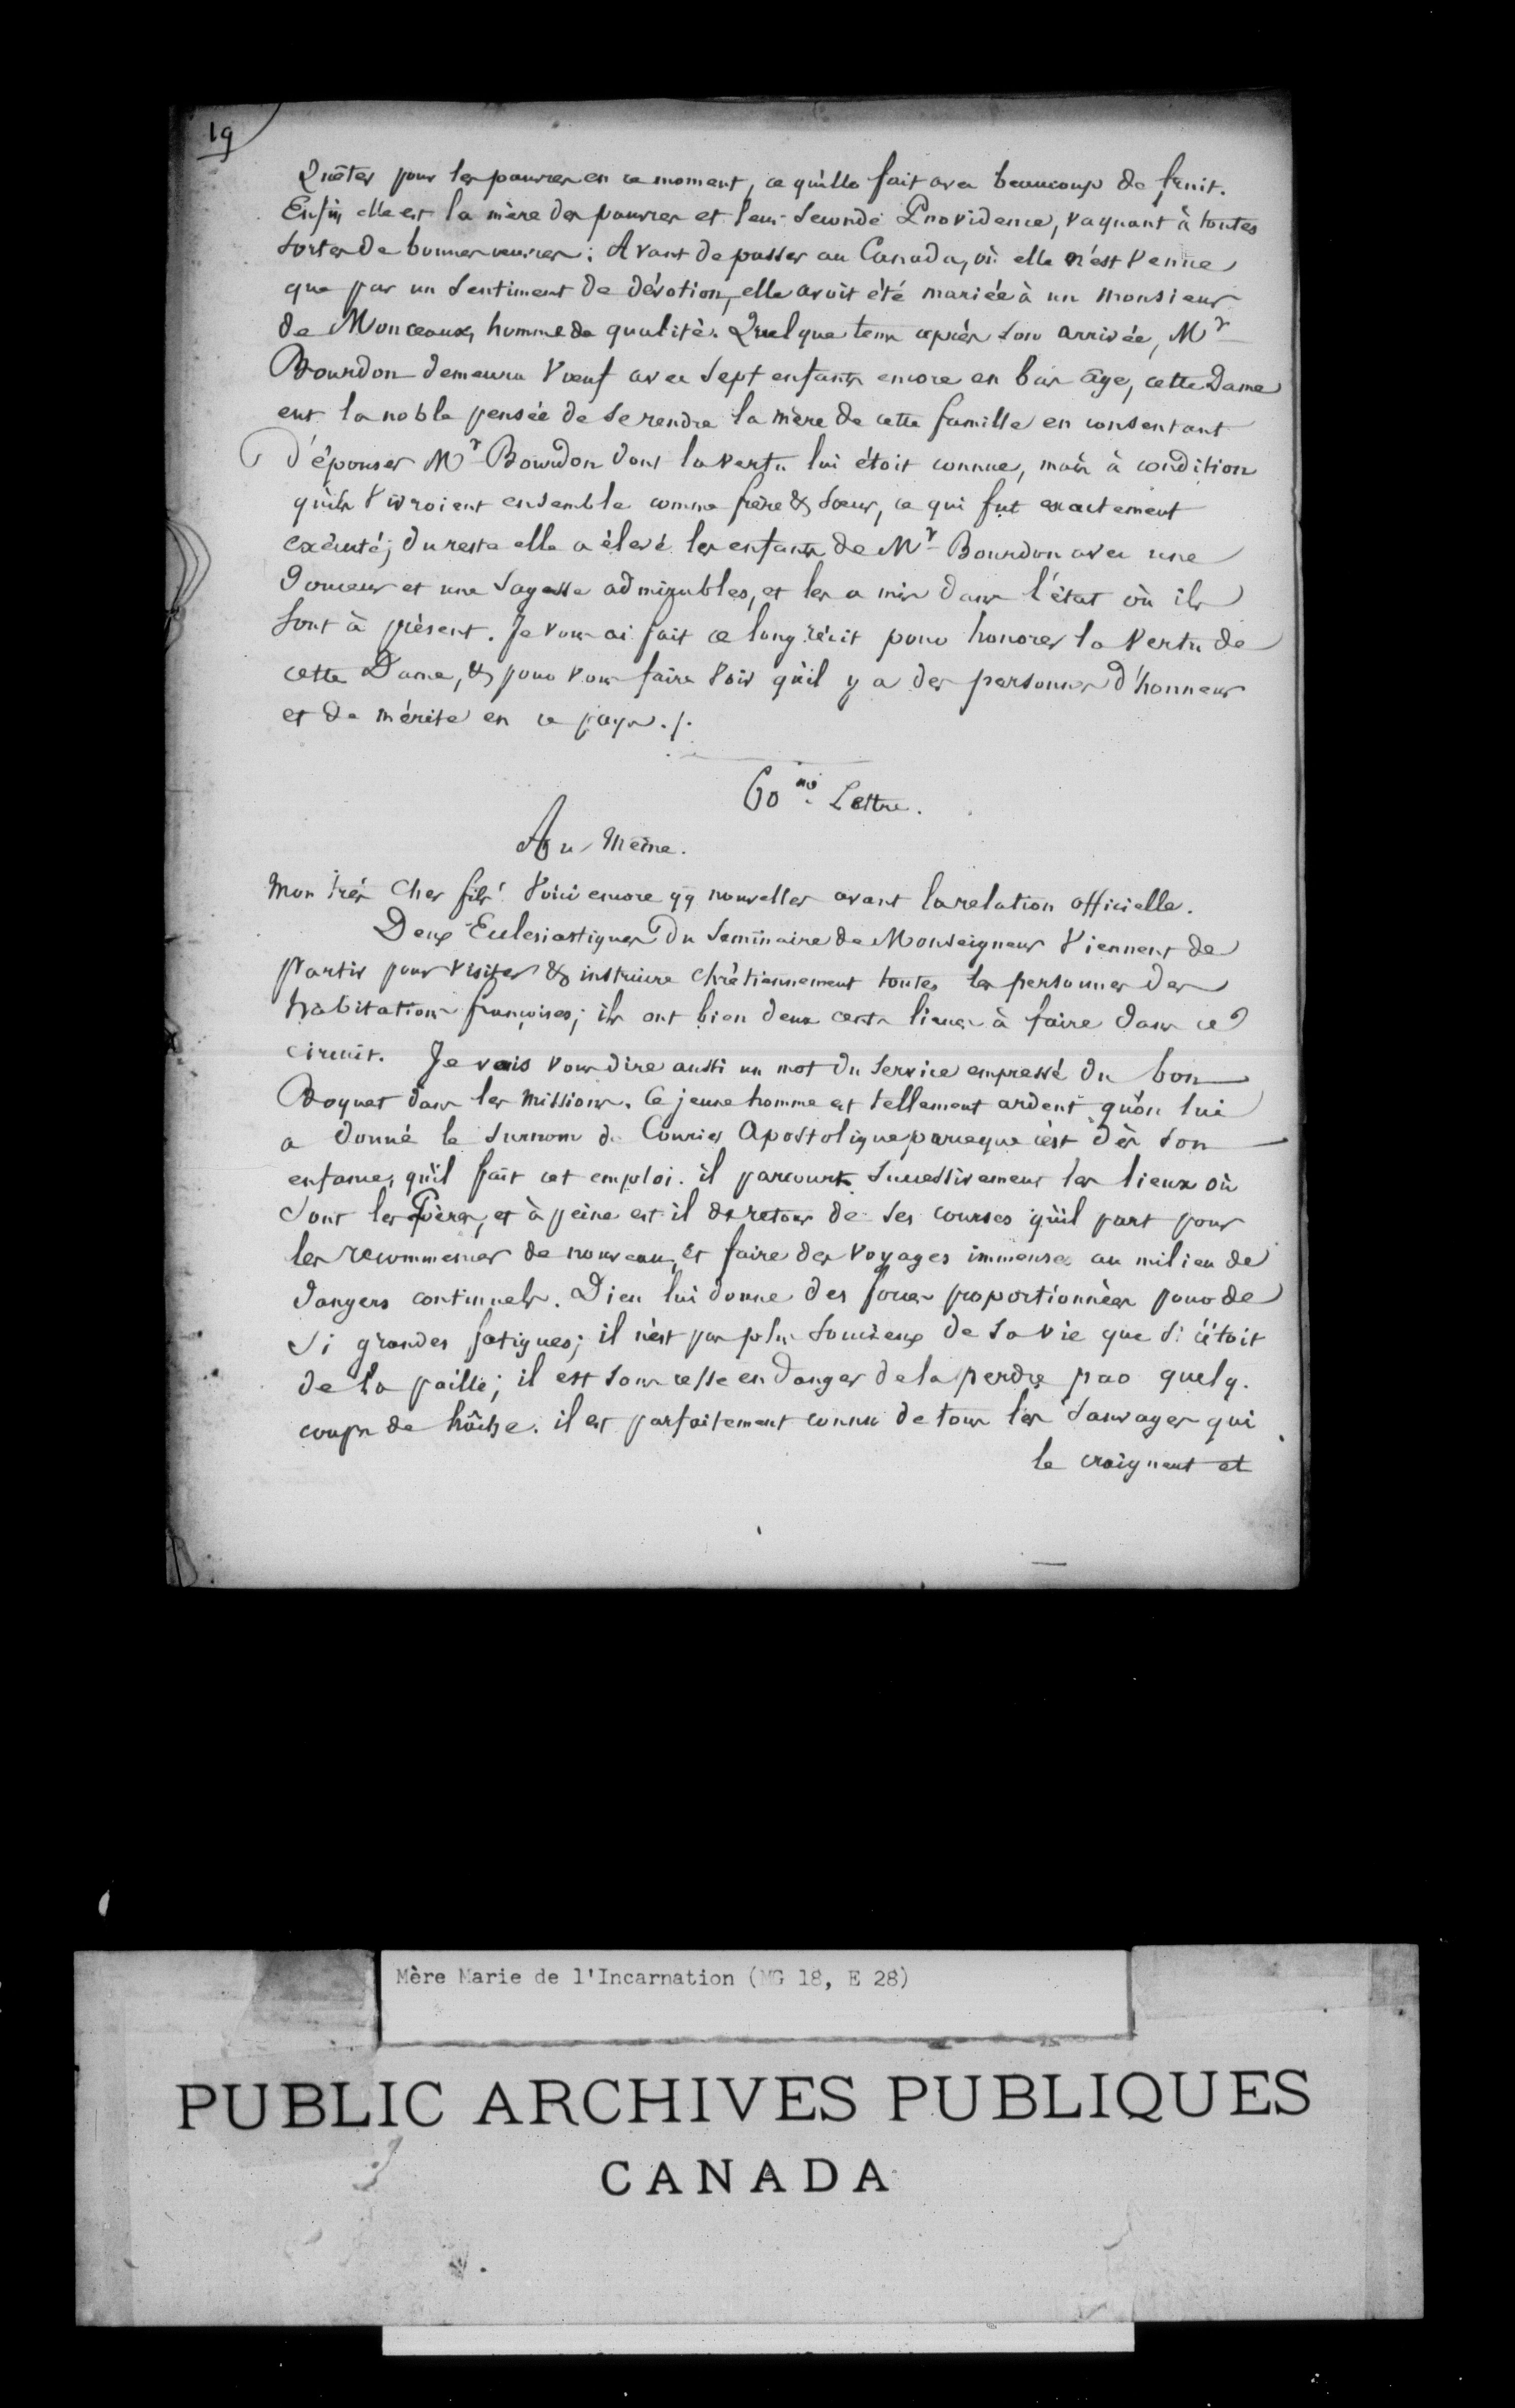 19
Quêter pour les pauvres en ce moment, ce qu'elle fait avec beaucoup de fruit.
Enfin elle est la mère des pauvres et leur seconde Providence, vaquant à toutes
sortes de bonnes œuvres: Avant de passer au Canada, où elle n'est venue
que par un sentiment de dévotion, elle avoit été mariée à un monsieur
de Monceaux, homme de qualité. Quelque tems après son arrivée, Mr
Bourdon demeura veuf avec sept enfants encore en bas âge, cette Dame
eut la noble pensée de se rendre la mère de cette famille en consentant
d'épouser Mr Bourdon dont la vertu lui étoit connue, mais à condition
qu'ils vivroient ensemble comme frère & sœur, ce qui fut exactement
exécuté; du reste elle a élevé les enfants de Mr Bourdon avec une
douceur et une sagesse admirables, et les a mis dans l'état où ils
sont à présent. Je vous ai fait ce long récit pour honorer la vertu de
cette Dame, & pour vous faire voir qu'il y a des personnes d'honneur
et de mérite en ce pays ./.
60me Lettre.
Au Même.
Mon très cher fils! Voici encore qq nouvelles avant la relation officielle.
Deux Eclesiastiques du Seminaire de Monseigneur viennent de
partir pour visiter & instruire chrétiennement toutes les personnes des
habitations françoises; ils ont bien deux cents lieues à faire dans ce
circuit. Je vais vous dire aussi un mot du service empressé du bon
Boquet dans les missions. Ce jeune homme est tellement ardent qu'on lui
a donné le surnom de Courier Apostolique parceque c'est dès son
enfance, qu'il fait cet emploi. il parcourt successivement les lieux où
sont les Pères, et à peine est il de retour de ses courses qu'il part pour
les recommencer de nouveau, et faire des voyages immenses au milieu de
dangers continuels. Dieu lui donne des forces proportionnées pour de
si grandes fatigues; il n'est pas plus soucieux de sa vie que si c'étoit
de la paille; il est sans cesse en danger de la perdre par quelq.
coups de hâche. il est parfaitement connu de tous les Sauvages qui
le craignent et
Mère Marie de l'Incarnation (MG 18, E 28)
PUBLIC ARCHIVES PUBLIQUES
CANADA